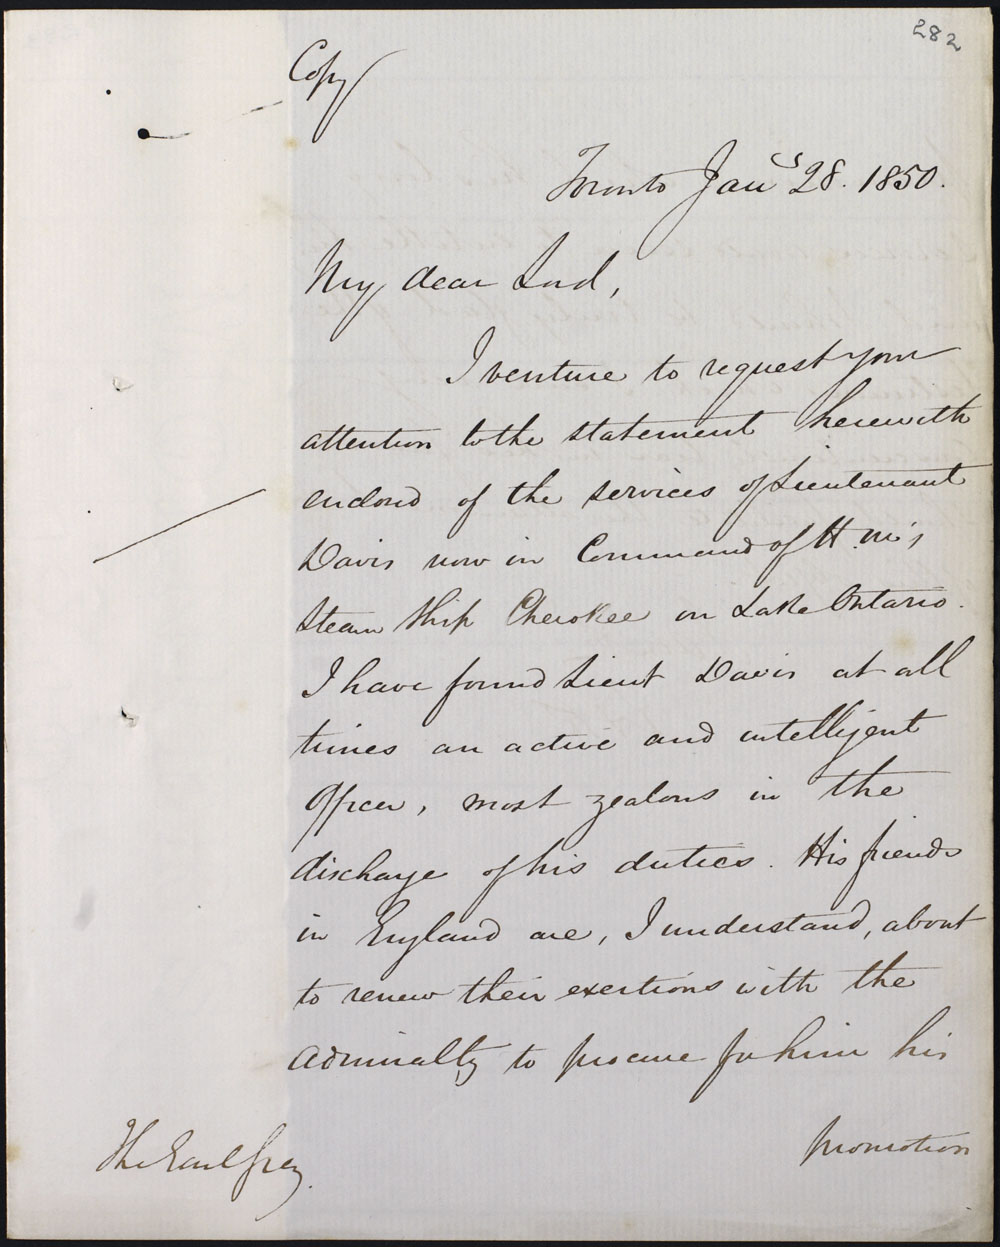 282
Copy
Toronto Jany 28. 1850.
My dear Lord,
I venture to request your
attention to the statement herewith
enclosed of the services of Lieutenant
Davis now in Command of H.M's
Steam Ship Cherokee on Lake Ontario.
I have found Lieut Davis at all
times an active and intelligent
Officer, most zealous in the
discharge of his duties. His friends
in England are, I understand, about
to renew their exertions with the
Admiralty to procure for him his
promotion
The Earl Grey.